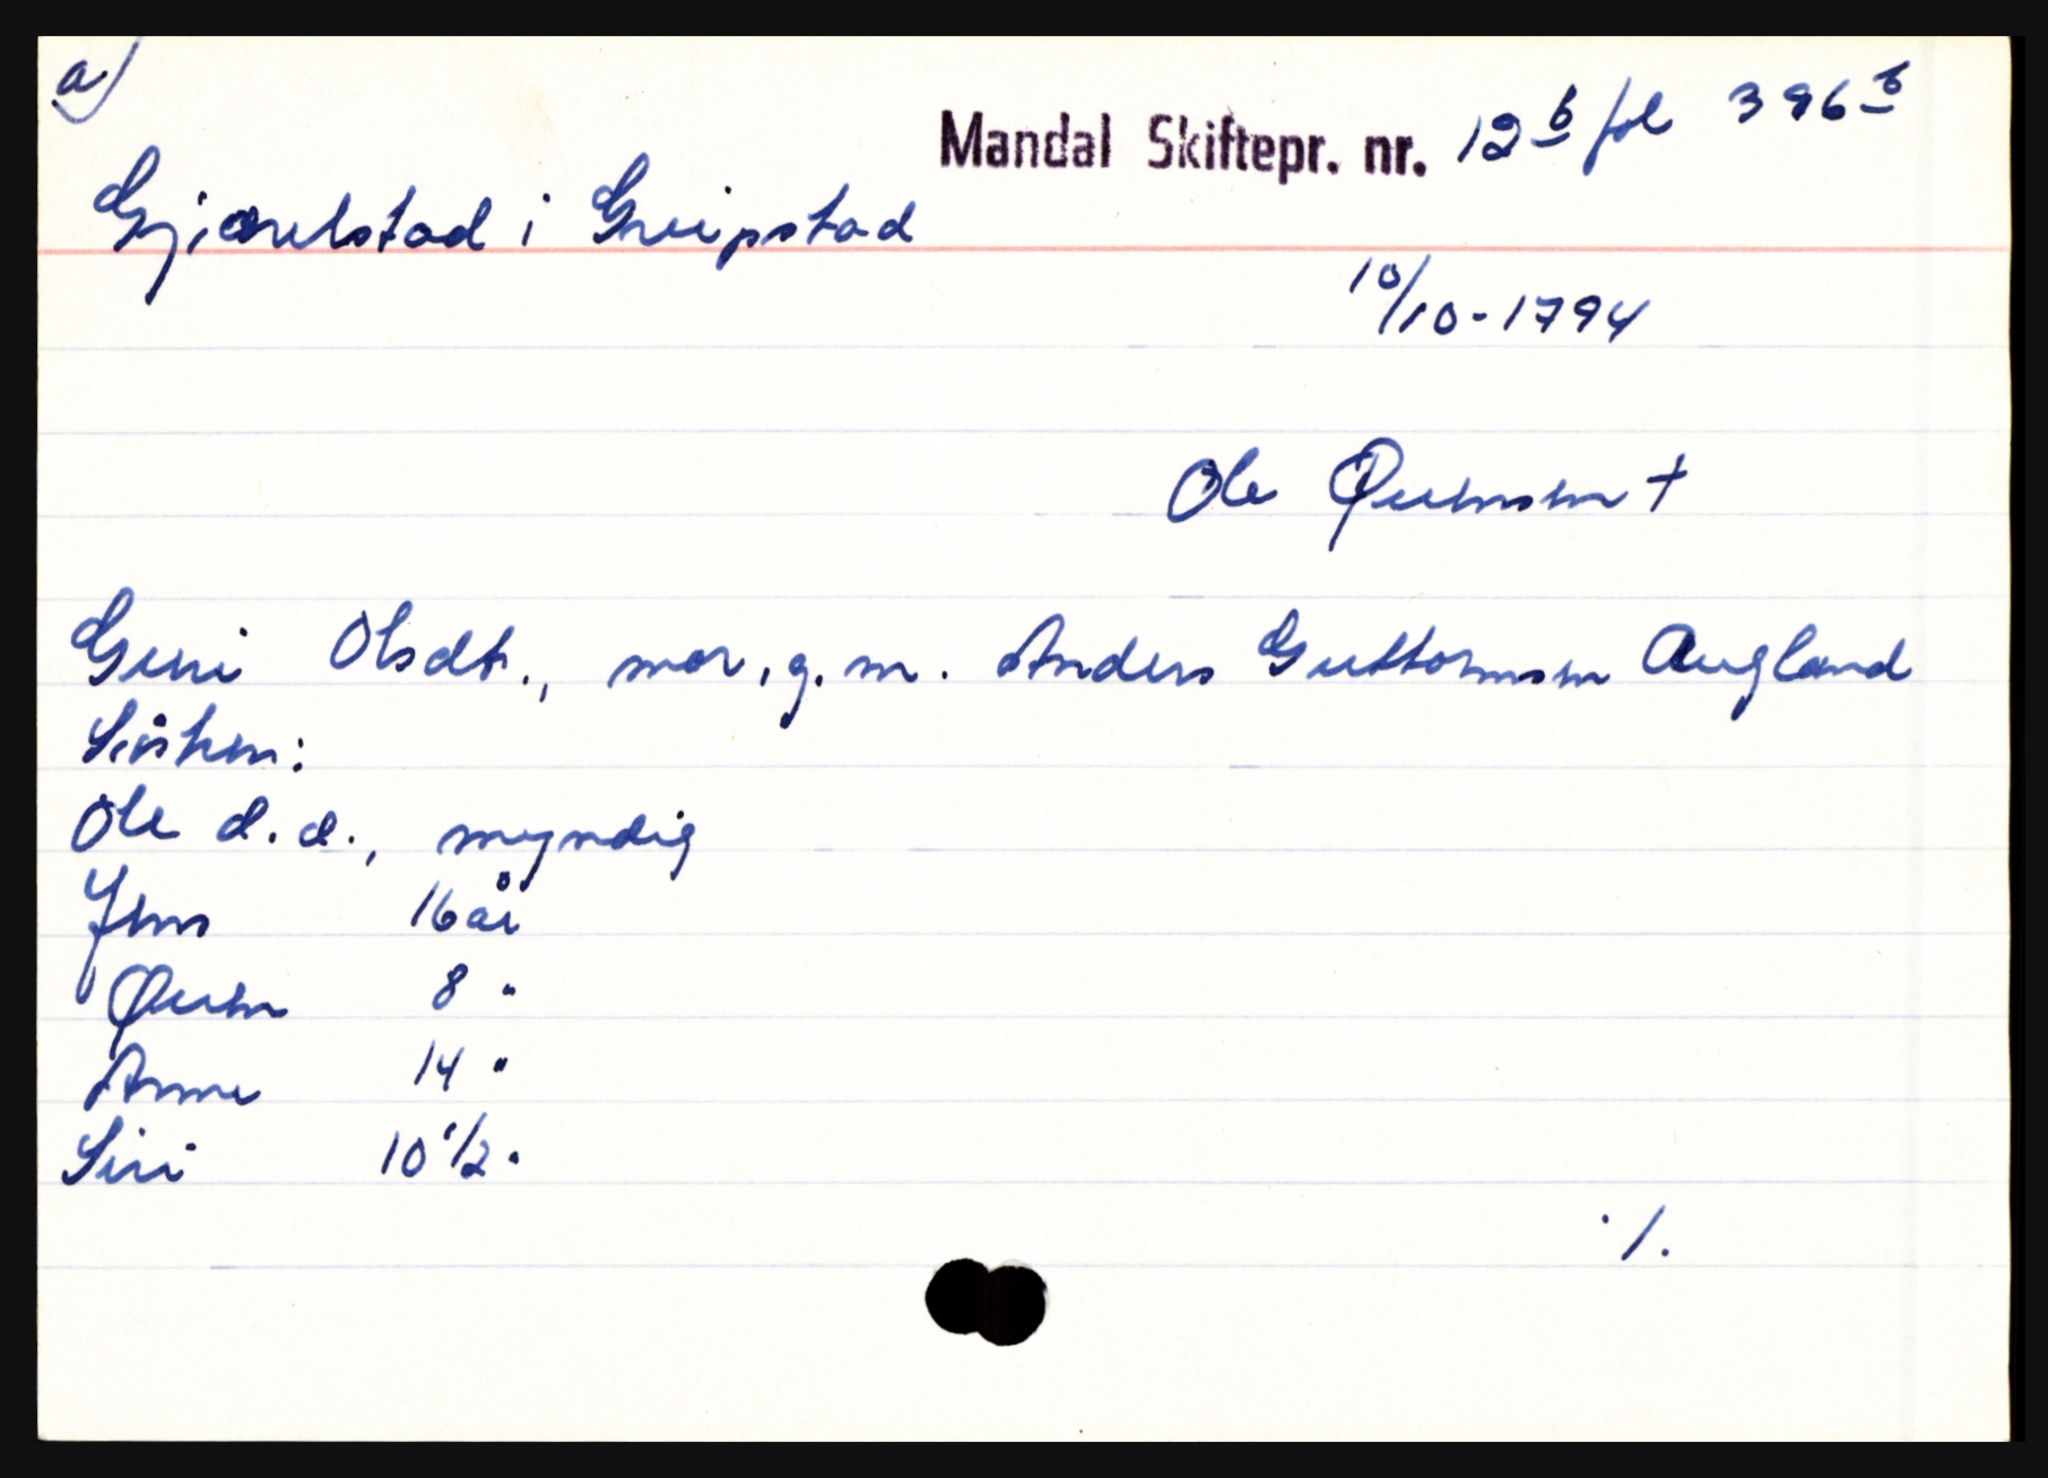 a)
Mandal Skiftepr. nr. 12 b fol 396 b
Gjærelstad i Greipstad
10/10-1794
Ole Øuensen +
Guri Olsdt., mor, g. m. Anders Guttormsen Augland
Søsken:
Ole d. e., myndig
Jens 16 år
Øuen 8 "
Anne 14 "
Siri 10 1/2 "
./.